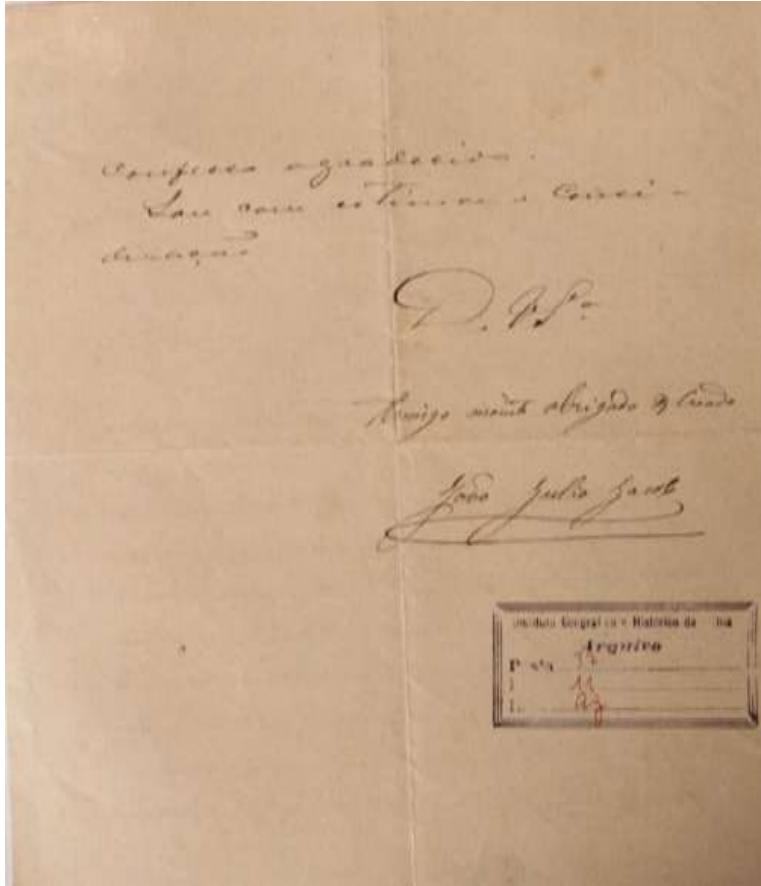 Confesso agradecido.
Sou com estima e Consi-
deração
D. V. Sª
Amigo muito obrigado e Criado
João Julio
Instituto Geográfico e Histórico da
Arquivo
Pasta 37
11